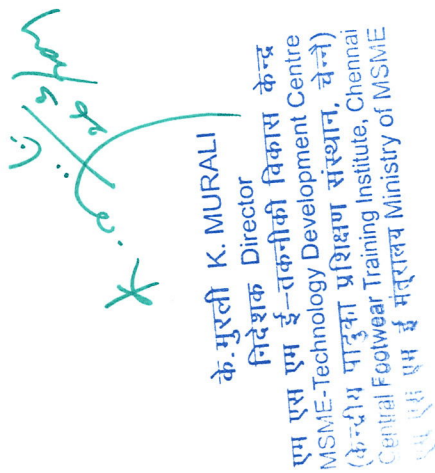 के.मुरली K. MURALI
निदेशक Director
एम एस एम ई-तकनीकी विकास केन्द्र
MSME-Technology Development Centre
(केन्द्रीय पादुका प्रशिक्षण संस्थान, चेन्नै)
Central Footwear Training Institute, Chennai
एम एस एम ई मंत्रालय Ministry of MSME